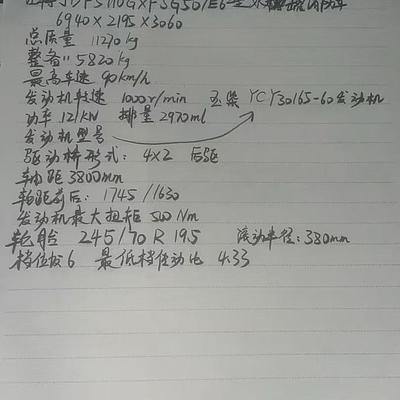 5110GXFSG50/E6
6940×2195×3060
总质量 11270kg
整备〃 5820kg
最高车速 90km/h
发动机转速 1000r/min 玉柴 YCY30165-60发动机
功率 121KW 排量 2970ml
发动机型号
驱动桥形式: 4×2 后驱
轴距 3800mm
轮距前后: 1745/1630
发动机最大扭矩 500Nm
轮胎 245/70 R 19.5 滚动半径: 380mm
档位数 6 最低档传动比 4.33